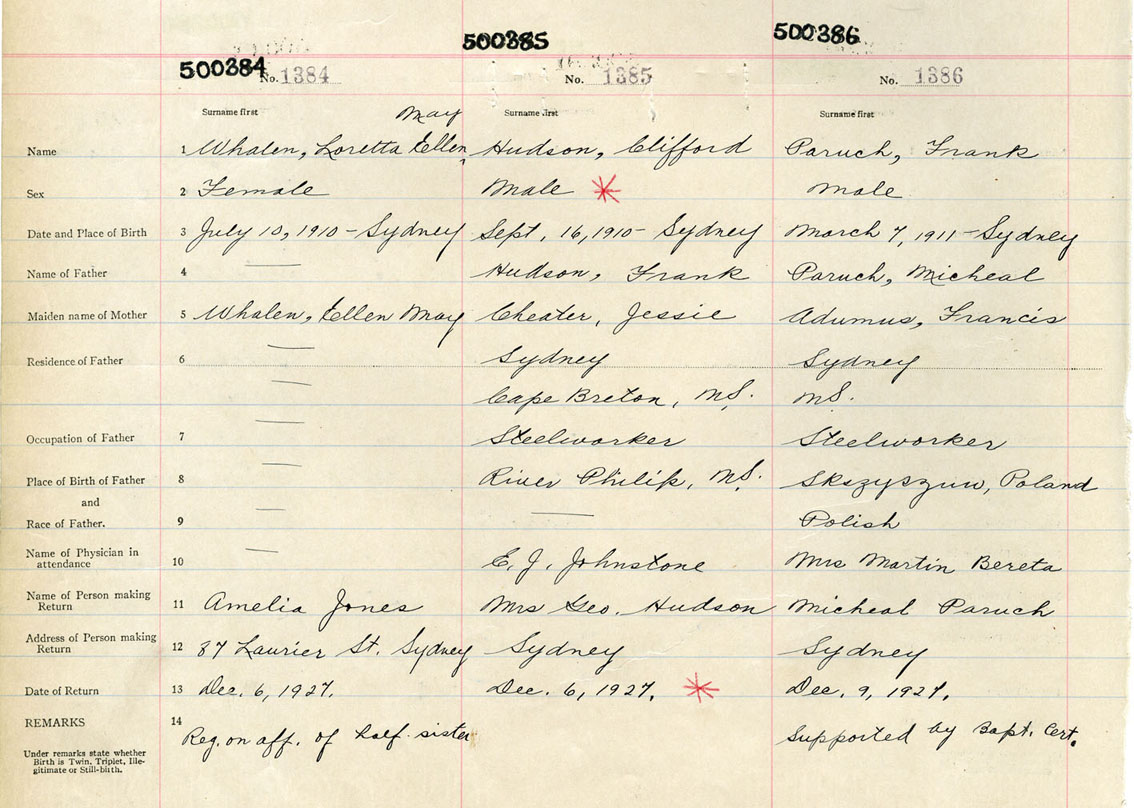 500384 500385 500386
No. 1384 No. 1385 No. 1386
Surname first Surname first Surname first
May
Name 1 Whalen, Loretta Ellen Hudson, Clifford Paruch, Frank
Sex 2 Female Male Male
Date and Place of Birth 3 July 10, 1910 - Sydney Sept. 16, 1910 - Sydney March 7, 1911 - Sydney
Name of Father 4 Hudson, Frank Paruch, Micheal
Maiden name of Mother 5 Whalen, Ellen May Cheater, Jessie Adumus, Francis
Residence of Father 6 Sydney Sydney
Cape Breton, N.S. N.S.
Occupation of Father 7 Steelworker Steelworker
Place of Birth of Father 8 River Philip, N.S. Skszyszuw, Poland
and
Race of Father. 9 Polish
Name of Physician in
attendance 10 E. J. Johnstone Mrs Martin Bereta
Name of Person making
Return 11 Amelia Jones Mrs Geo. Hudson Micheal Paruch
Address of Person making
Return 12 87 Laurier St. Sydney Sydney Sydney
Date of Return 13 Dec. 6, 1927. Dec. 6, 1927. Dec. 9, 1927.
REMARKS 14 Reg. on aff. of half sister Supported by Bapt. Cert.
Under remarks state whether
Birth is Twin, Triplet, Ille-
gitimate or Still-birth.